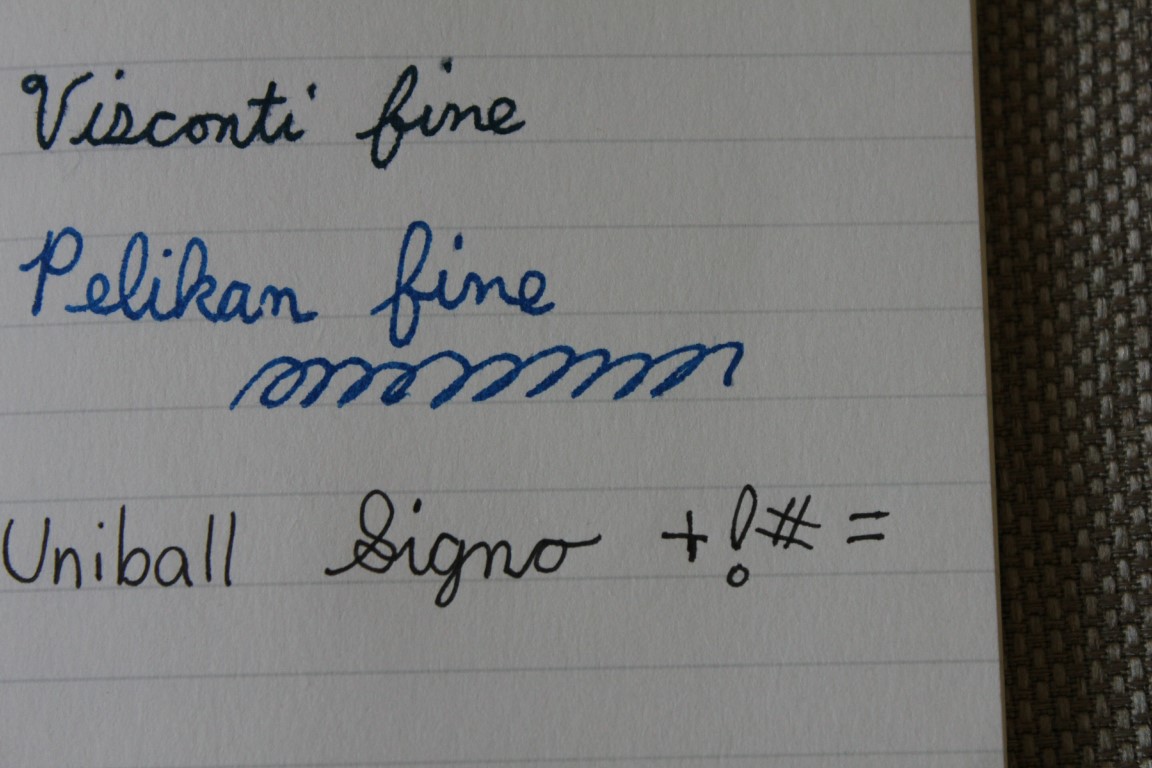 Visconti fine
Pelikan fine
Uniball Signo +!#=